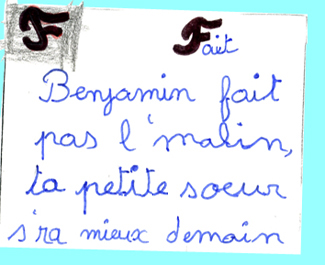 F
Fait
Benjamin fait
pas l'malin,
ta petite soeur
s'ra mieux demain